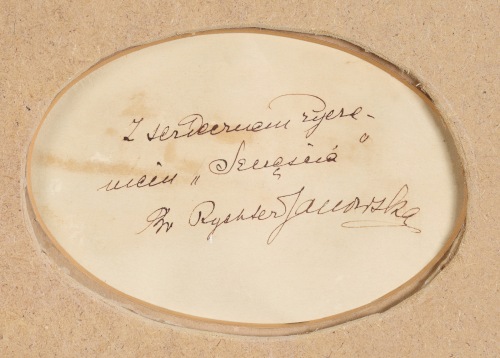 Z serdecznem życze-
niem „Szczęścia”
Br Rychter Janowska